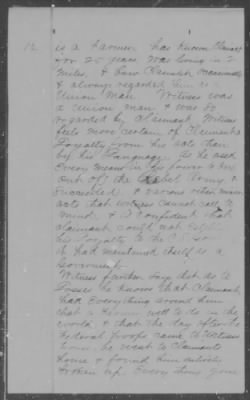 12 is a Farmer has known Claimant
for 20 years Was living in 2
miles, & saw Claimant occasionally
& always regarded him as a
Union Man. Witness was
a Union man & was so
regarded by Claimant Witness
feels more certain of Claimants
Loyalty from his acts than
by his Language. As he used
every means in his power to keep
out of the Rebel Army &
Succeeded & various other
acts that witness cannot call to
mind, & is confident that
Claimant could not
his loyalty to the C.S. or
it had maintained itself as a
Government
Witness further says that as to
losses he knows that Claimant
had Everything around him
that a Farmer well to do in the
world & that the day after the
Federal troops came to Witness
house he went to Claimants
house & found him entirely
broken up. Everything gone